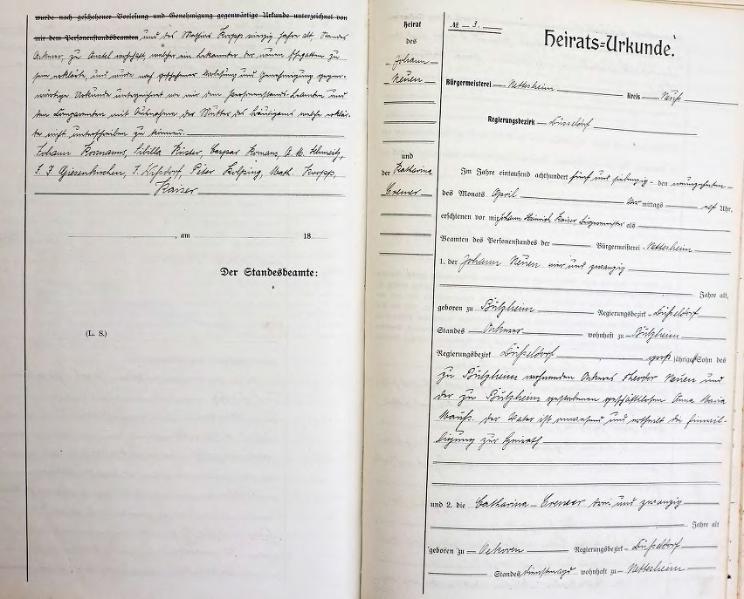 wurde nach geschehener Vorlesung und Genehmigung gegenwärtige Urkunde unterzeichnet von
mir dem Personenstandsbeamten und des Mathias Kropp vierzig Jahre alt, Standes
Ackerer, zu wohnhaft, welcher ein Bekannter der neuen Ehegatten zu
sein erklärte, und wurde nach geschehener Vorlesung und Genehmigung gegen-
wärtige Urkunde unterzeichnet von mir dem Personenstands-Beamten und
den Comparenten mit Ausnahme der Mutter der Bräutigams welche erklär-
te nicht unterschreiben zu können.
Johann Sibilla Caspar
Giesenkirchen, Peter Math. Kropp,
Kaiser
, am 18
Der Standesbeamte:
(L. S.)
Heirat
des
Johann
Neuen
und
der Katharina
Cremer
№ 3.
Heirats-Urkunde.
Bürgermeisterei Nettesheim Kreis Neuß
Regierungsbezirk Düsseldorf
Im Jahre eintausend achthundert fünf und siebenzig den neunzehnten
des Monats April Vor mittags elf Uhr,
erschienen vor mir Johann Heinrich Kaiser Bürgermeister als
Beamten des Personenstandes der Bürgermeisterei Nettesheim
1. der Johann Neuen vier und zwanzig
Jahre alt,
geboren zu Bützheim Regierungsbezirk Düsseldorf
Standes Ackerer wohnhaft zu Bützheim
Regierungsbezirk Düsseldorf groß jähriger Sohn des
zu Bützheim wohnenden Ackerers Theodor Neuen und
der zu Bützheim verstorbenen geschäftslosen Anna Maria
der Vater ist anwesend und ertheilt die Einwil-
ligung zur Heirath
und 2. die Catharina Cremer drei und zwanzig
Jahre alt
geboren zu Oekoven Regierungsbezirk Düsseldorf
Standes Dienstmagd wohnhaft zu Nettesheim